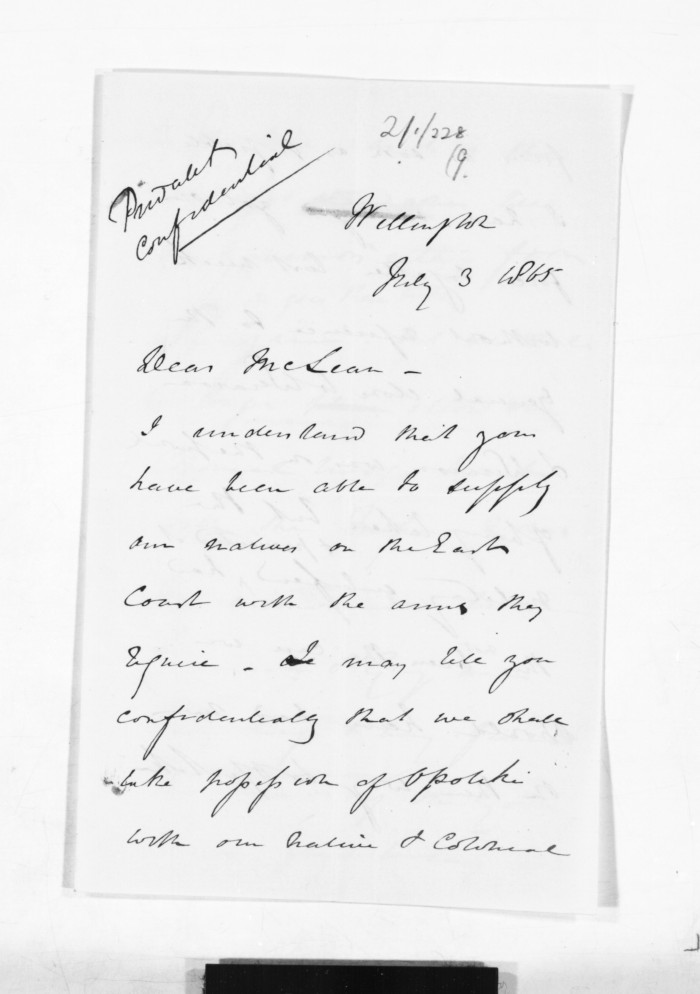 2/1/228
19.
Private &
confidential
Wellington
July 3 1865
Dear McLean -
I understand that you
have been able to supply
our natives on the East
Coast with the arms they
require - I may tell you
confidentially that we shall
take possession of Opotiki
with our native & Colonial